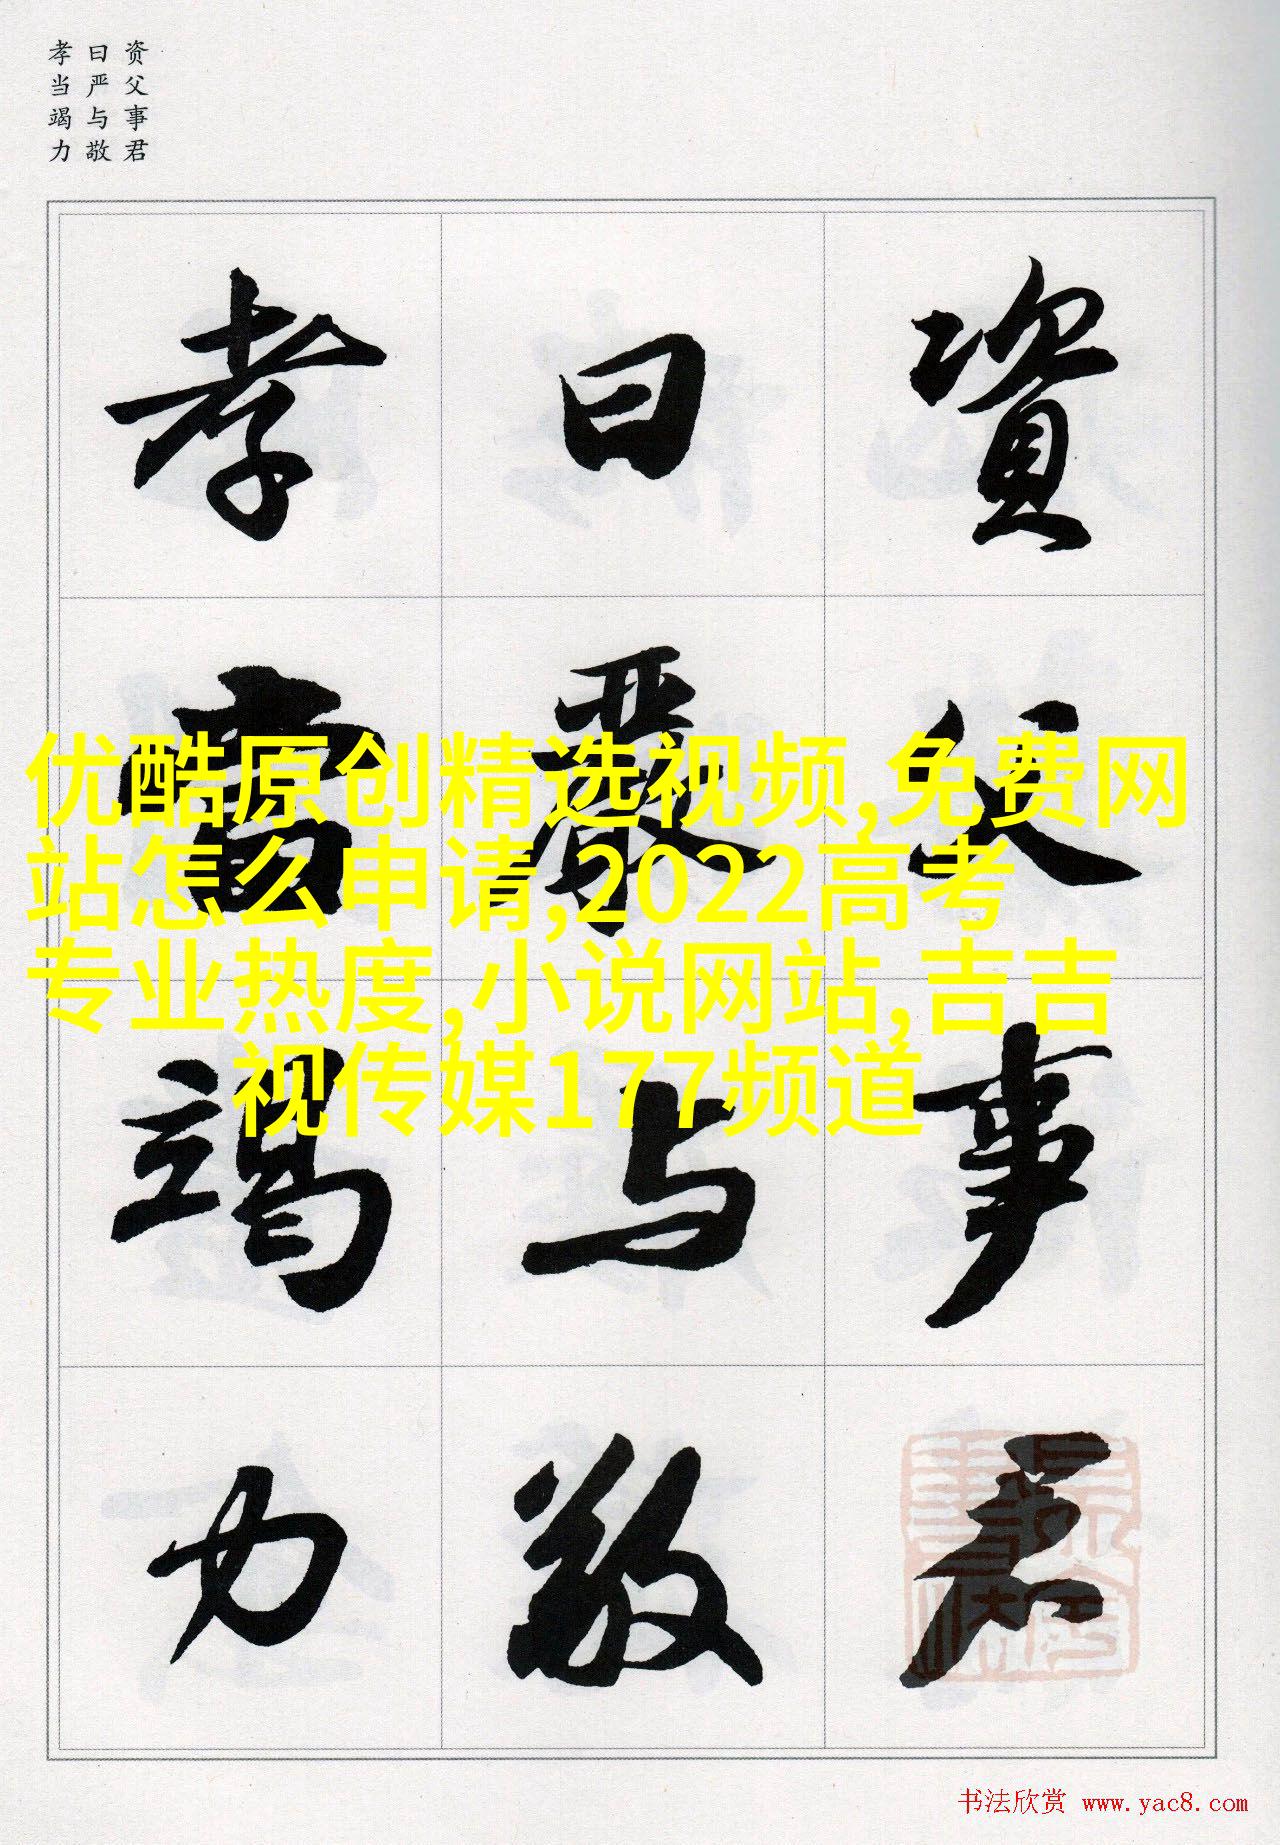 资父事君
曰严与敬
孝当竭力
資父事君
曰嚴与敬
孝當竭力
优酷原创精选视频,免费网
站怎么申请,2022高考
专业热度,小说网站,吉吉
视传媒177频道
书法欣赏 www.yac8.com